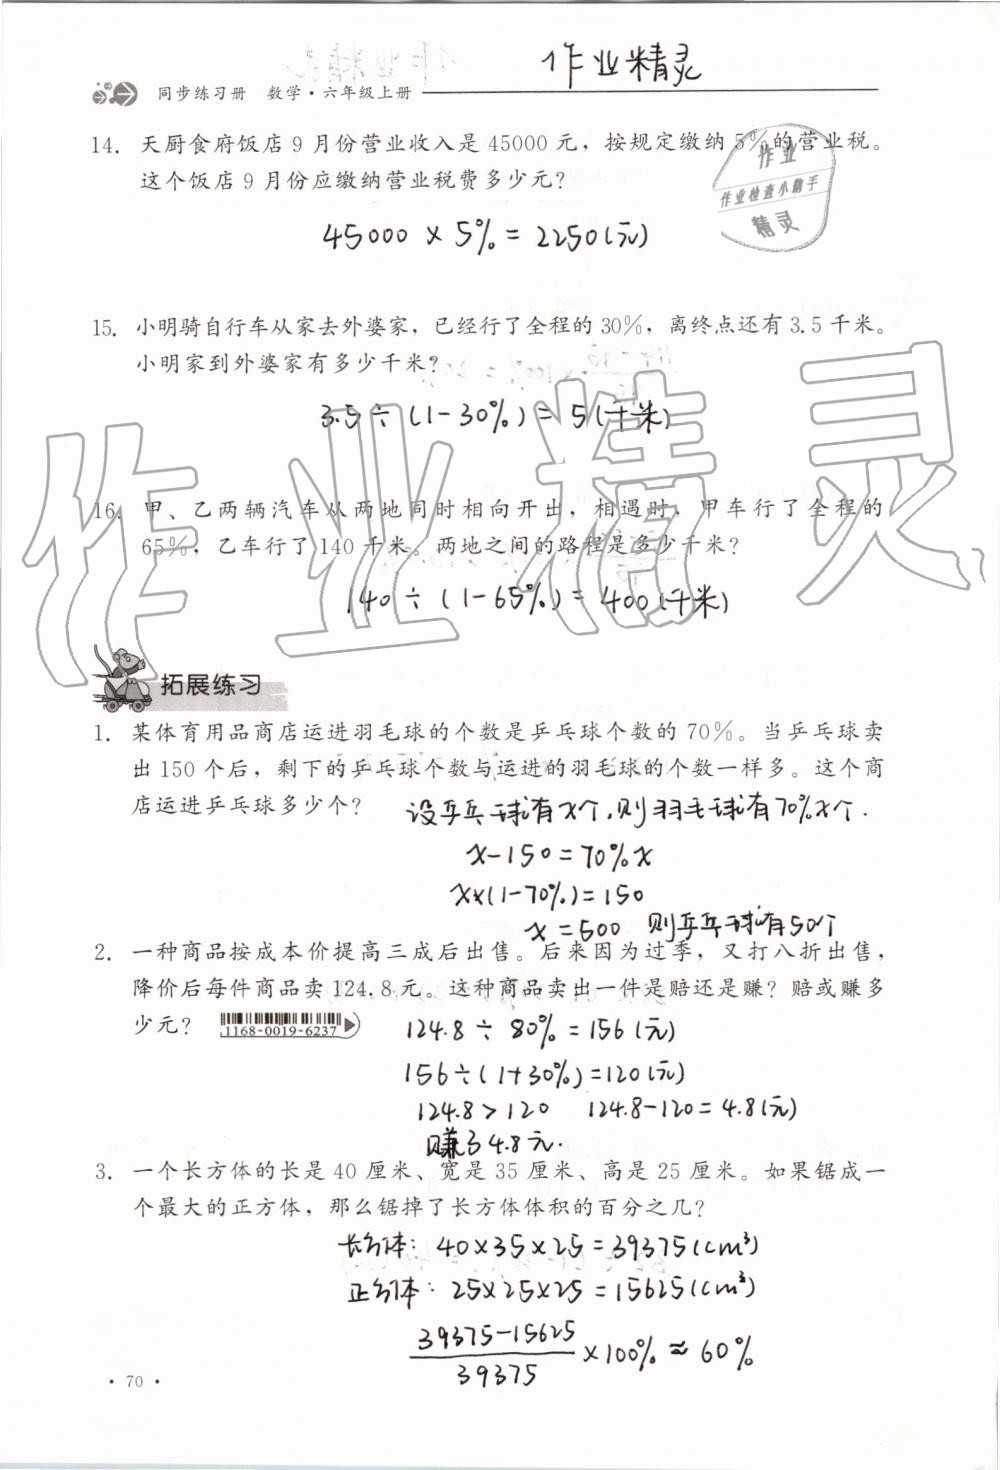 作业精灵
同步练习册 数学·六年级上册
14. 天厨食府饭店 9 月份营业收入是 45000 元，按规定缴纳 5%的营业税。
这个饭店 9 月份应缴纳营业税费多少元？
作业
作业检查小助手
精灵
45000 × 5% = 2250(元)
15. 小明骑自行车从家去外婆家，已经行了全程的 30%，离终点还有 3.5 千米。
小明家到外婆家有多少千米？
3.5 ÷ (1-30%) = 5(千米)
作业精灵
16. 甲、乙两辆汽车从两地同时相向开出，相遇时，甲车行了全程的
65%，乙车行了 140 千米。两地之间的路程是多少千米？
140 ÷ (1-65%) = 400(千米)
拓展练习
1. 某体育用品商店运进羽毛球的个数是乒乓球个数的 70%。当乒乓球卖
出 150 个后，剩下的乒乓球个数与运进的羽毛球的个数一样多。这个商
店运进乒乓球多少个？
设乒乓球有x个,则羽毛球有70%x个.
x-150=70%x
x×(1-70%)=150
x=500 则乒乓球有500个
2. 一种商品按成本价提高三成后出售。后来因为过季，又打八折出售，
降价后每件商品卖 124.8 元。这种商品卖出一件是赔还是赚？赔或赚多
少元？
1168-0019-6237
124.8 ÷ 80% = 156(元)
156÷(1+30%)=120(元)
124.8 > 120 124.8-120= 4.8(元)
赚了4.8元.
3. 一个长方体的长是 40 厘米、宽是 35 厘米、高是 25 厘米。如果锯成一
个最大的正方体，那么锯掉了长方体体积的百分之几？
长方体：40×35×25=39375(cm³)
正方体：25×25×25=15625(cm³)
39375-15625
39375
×100% ≈ 60%
· 70 ·